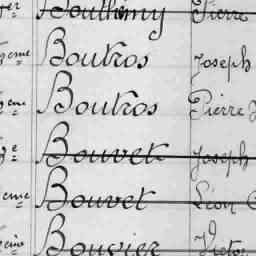 Bouthémy Pierre
Boutros Joseph
Boutros Pierre J
Bouvet Joseph
Bouvet Léon
Bouvier Victor